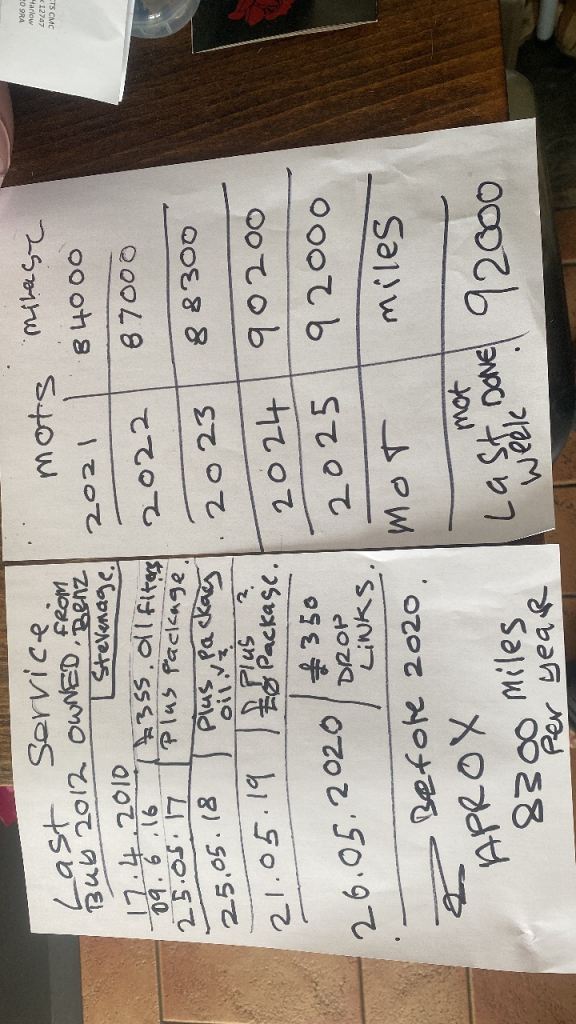 TS CMC
x 12747
Harlow
20 9RA
mots mileage
2021 84000
2022 87000
2023 88300
2024 90200
2025 92000
MOT miles
Last mot
week DONE. 92000
Last Service.
Bub 2012 OWNED, FROM
Benz
Stevenage.
17.4.2010
09.6.16 £355.oil filters
25.05.17 Plus Package.
25.05.18 Plus, Package
oil.
21.05.19 Plus ?
Package.
26.05.2020 £350
DROP
LINKS.
Before 2020.
APROX
8300 miles
Per year